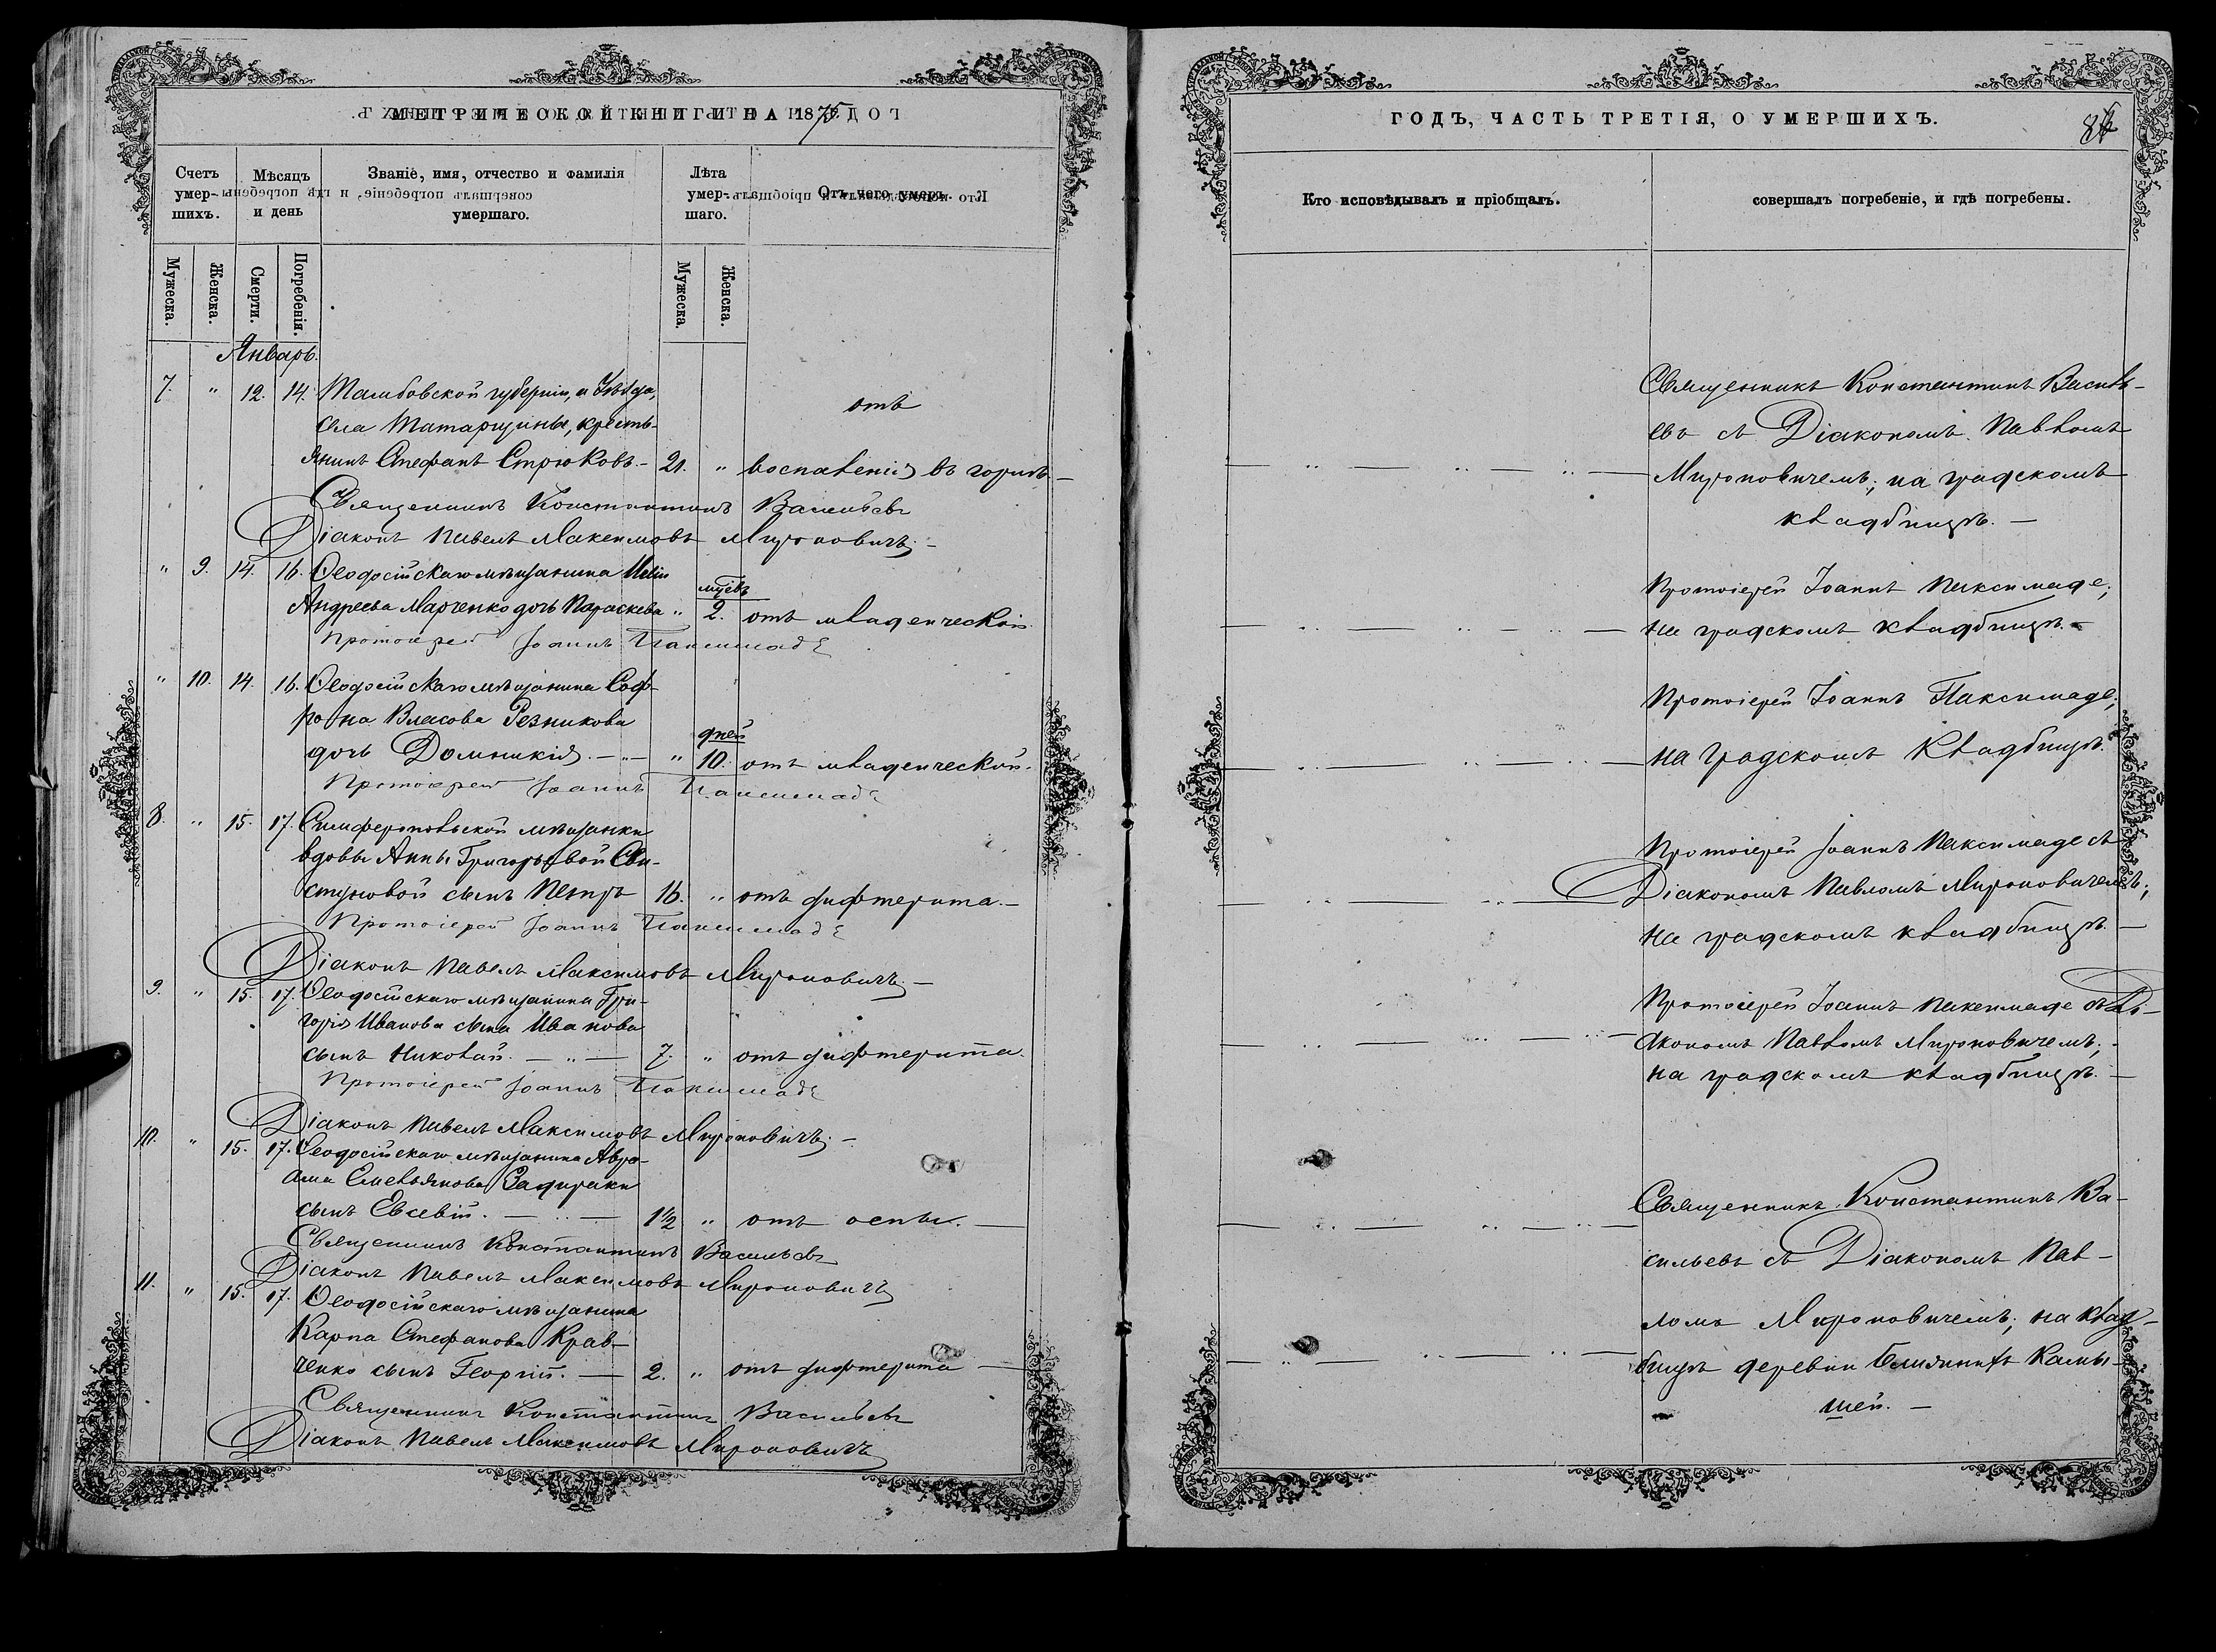 МЕТРИЧЕСКОЙ КНИГИ НА 1875
Счетъ умер-шихъ.
Мѣсяцъ и день
Званіе, имя, отчество и фамилія умершаго.
Лѣта умер-шаго.
Отъ чего умеръ.
Мужеска.
Женска.
Смерти.
Погребенія.
Мужеска.
Женска.
Январь.
7. " 12. 14. Тамбовской губерніи, и Уѣзда,
села Татарщины, кресть-
отъ
янинъ Стефанъ Стрюковъ. — 21. " воспаленія въ горлѣ —
Священникъ Константинъ Васильевъ
Діаконъ Павелъ Максимовъ Мироновичъ. —
" 9. 14. 16. Ѳеодосійскаго мѣщанина Иліи
мцевъ
Андреева Марченко дочь Параскева " 2. отъ младенческой
Протоіерей Іоаннъ Паксимаде
" 10. 14. 16. Ѳеодосійскаго мѣщанина Соф-
рона Власова Резникова
дней
дочь Домникія. — " — " 10. отъ младенческой.
Протоіерей Іоаннъ Паксимаде
8. " 15. 17. Симферопольской мѣщанки
вдовы Анны Григорьевой Сви-
стуновой сынъ Петръ 16. " отъ дифтерита. —
Протоіерей Іоаннъ Паксимаде
Діаконъ Павелъ Максимовъ Мироновичъ. —
9. " 15. 17. Ѳеодосійскаго мѣщанина Гри-
горія Иванова сына Иванова
сынъ Николай. — " — 7. " отъ дифтерита.
Протоіерей Іоаннъ Паксимаде
Діаконъ Павелъ Максимовъ Мироновичъ. —
10. " 15. 17. Ѳеодосійскаго мѣщанина Авра-
ама Емельянова Задираки
сынъ Евсевій. — " — 1½ " отъ оспы. —
Священникъ Константинъ Васильевъ
Діаконъ Павелъ Максимовъ Мироновичъ
11. " 15. 17. Ѳеодосійскаго мѣщанина
Карпа Стефанова Крав-
ченко сынъ Георгій. — 2. " отъ дифтерита —
Священникъ Константинъ Васильевъ
Діаконъ Павелъ Максимовъ Мироновичъ
ГОДЪ, ЧАСТЬ ТРЕТІЯ, О УМЕРШИХЪ.
Кто исповѣдывалъ и пріобщалъ.
совершалъ погребеніе, и гдѣ погребены.
Священникъ Константинъ Василь-
евъ съ Діакономъ Павломъ
Мироновичемъ; на градскомъ
кладбищѣ. —
Протоіерей Іоаннъ Паксимаде;
на градскомъ кладбищѣ. —
Протоіерей Іоаннъ Паксимаде;
на градскомъ кладбищѣ.
Протоіерей Іоаннъ Паксимаде съ
Діакономъ Павломъ Мироновичемъ;
на градскомъ кладбищѣ. —
Протоіерей Іоаннъ Паксимаде съ Ді-
акономъ Павломъ Мироновичемъ;
на градскомъ кладбищѣ. —
Священникъ Константинъ Ва-
сильевъ съ Діакономъ Пав-
ломъ Мироновичемъ; на клад-
бищѣ деревни Ближнихъ Камы-
шей. —